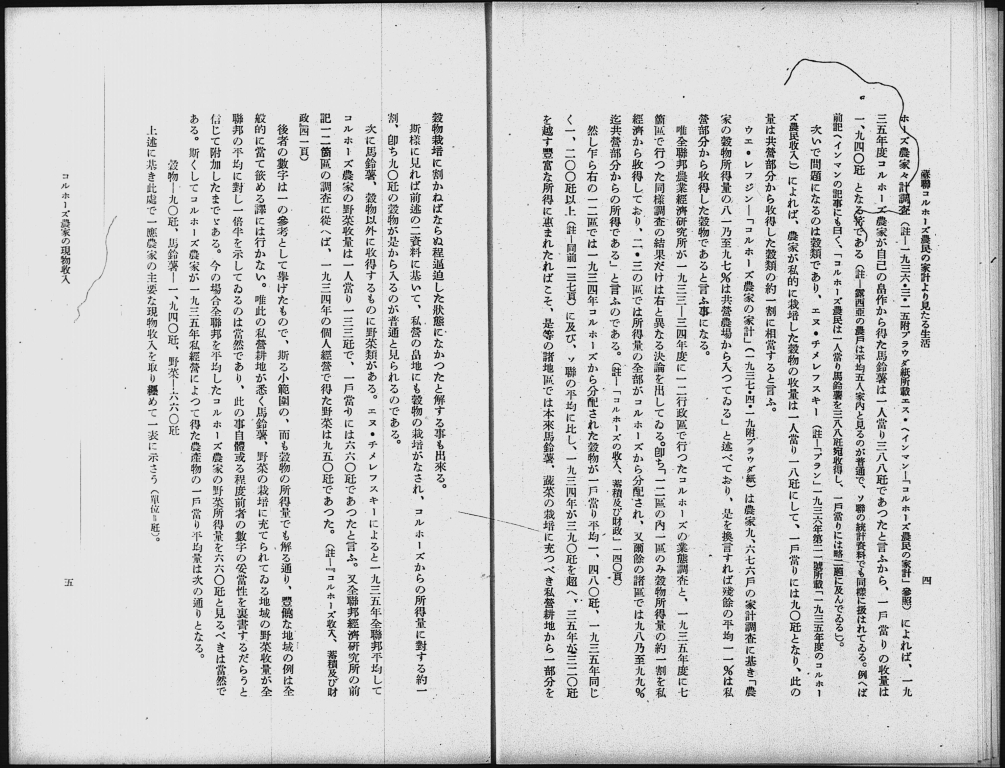 蘇聯コルホーズ農民の家計より見たる生活
四
ホーズ農家々計調査(註―一九三六・三・一五附プラウダ紙所載エス・ヘインマン―「コルホーズ農民の家計」參照)によれば、一九
三五年度コルホーズ農家が自己の畠作から得た馬鈴薯は一人當り三八八瓩であつたと言ふから、一戸當りの收量は
一、九四〇瓩となる筈である(註―露西亞の農戸は平均五人家内と見るのが普通で、ソ聯の統計資料でも同樣に扱はれてゐる。例へば
前記ヘインマンの記事にも曰く、「コルホーズ農民は一人當り馬鈴薯を三八八瓩宛收得し、一戸當りには略二瓲に及んでゐる」)。
次いで問題になるのは穀類であり、エヌ・チメレフスキー(註―「プラン」一九三六年第二一號所載「一九三五年度のコルホー
ズ農民收入」)によれば、農家が私的に栽培した穀物の收量は一人當り一八瓩にして、一戸當りには九〇瓩となり、此の
量は共營部分から收得した穀類の約一割に相當すると言ふ。
ウエ・レフジン―「コルホーズ農家の家計」(一九三七・四・一九附プラウダ紙)は農家九、六七六戸の家計調査に基き「農
家の穀物所得量の八一乃至九七%は共營農場から入つてゐる」と述べており、是を換言すれば殘餘の平均一一%は私
營部分から收得した穀物であると言ふ事になる。
唯全聯邦農業經濟研究所が一九三三―三四年度に一二行政區で行つたコルホーズの業態調査と、一九三五年度に七
箇區で行つた同樣調査の結果だけは右と異なる決論を出してゐる。卽ち「一二區の内一區のみ穀物所得量の約一割を私
經濟から收得しており、二・三の區では所得量の全部がコルホーズから分配され、又爾餘の諸區では九八乃至九九%
迄共營部分からの所得である」と言ふのである。(註―「コルホーズの收入、蓄積及び財政」一四〇頁)
然し乍ら右の一二區では一九三四年コルホーズから分配された穀物が一戸當り平均一、四八〇瓩、一九三五年同じ
く一、二〇〇瓩以上(註―同前一三七頁)に及び、ソ聯の平均に比し、一九三四年が三九〇瓩を超へ、三五年が三二〇瓩
を越す豐富な所得に惠まれたればこそ、是等の諸地區では本來馬鈴薯、蔬菜の栽培に充つべき私營耕地から一部分を
穀物栽培に割かねばならぬ程逼迫した狀態になかつたと解する事も出來る。
斯樣に見れば前述の二資料に基いて、私營の畠地にも穀物の栽培がなされ、コルホーズからの所得量に對する約一
割、卽ち九〇瓩の穀物が是から入るのが普通と見られるのである。
次に馬鈴薯、穀物以外に收得するものに野菜類がある。エヌ・チメレフスキーによると一九三五年全聯邦平均して
コルホーズ農家の野菜收量は一人當り一三三瓩で、一戸當りには六六〇瓩であつたと言ふ。又全聯邦經濟研究所の前
記一二箇區の調査に從へば、一九三四年の個人經營で得た野菜は九五〇瓩であつた。(註―『コルホーズ收入、蓄積及び財
政』四一頁)
後者の數字は一の參考として擧げたもので、斯る小範圍の、而も穀物の所得量でも解る通り、豐饒な地域の例は全
般的に當て嵌める譯には行かない。唯此の私營耕地が悉く馬鈴薯、野菜の栽培に充てられてゐる地域の野菜收量が全
聯邦の平均に對し一倍半を示してゐるのは當然であり、此の事自體或る程度前者の數字の妥當性を裏書するだらうと
信じて附加したまでゞある。今の場合全聯邦を平均したコルホーズ農家の野菜所得量を六六〇瓩と見るべきは當然で
ある。斯くしてコルホーズ農家が一九三五年私經營によつて得た農產物の一戸當り平均量は次の通りとなる。
穀物―九〇瓩、馬鈴薯―一、九四〇瓩、野菜―六六〇瓩
上述に基き此處で一應農家の主要な現物收入を取り纏めて一表に示さう(單位=瓩)。
コルホーズ農家の現物收入
五